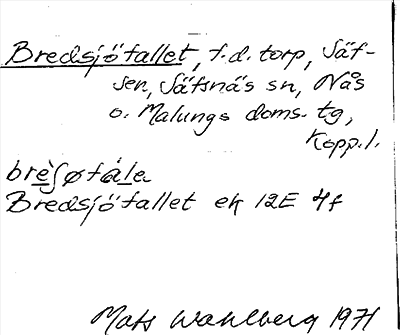 Bredsjöfallet, f.d. torp, Säf-
sen, Säfsnäs sn, Nås
o. Malungs doms. tg,
Kopp. l.
brèʃøfá̀le
Bredsjöfallet ek 12E 4f
Mats Wahlberg 1971